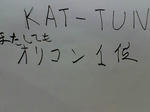 KAT-TUN
またしても
オリコン1位